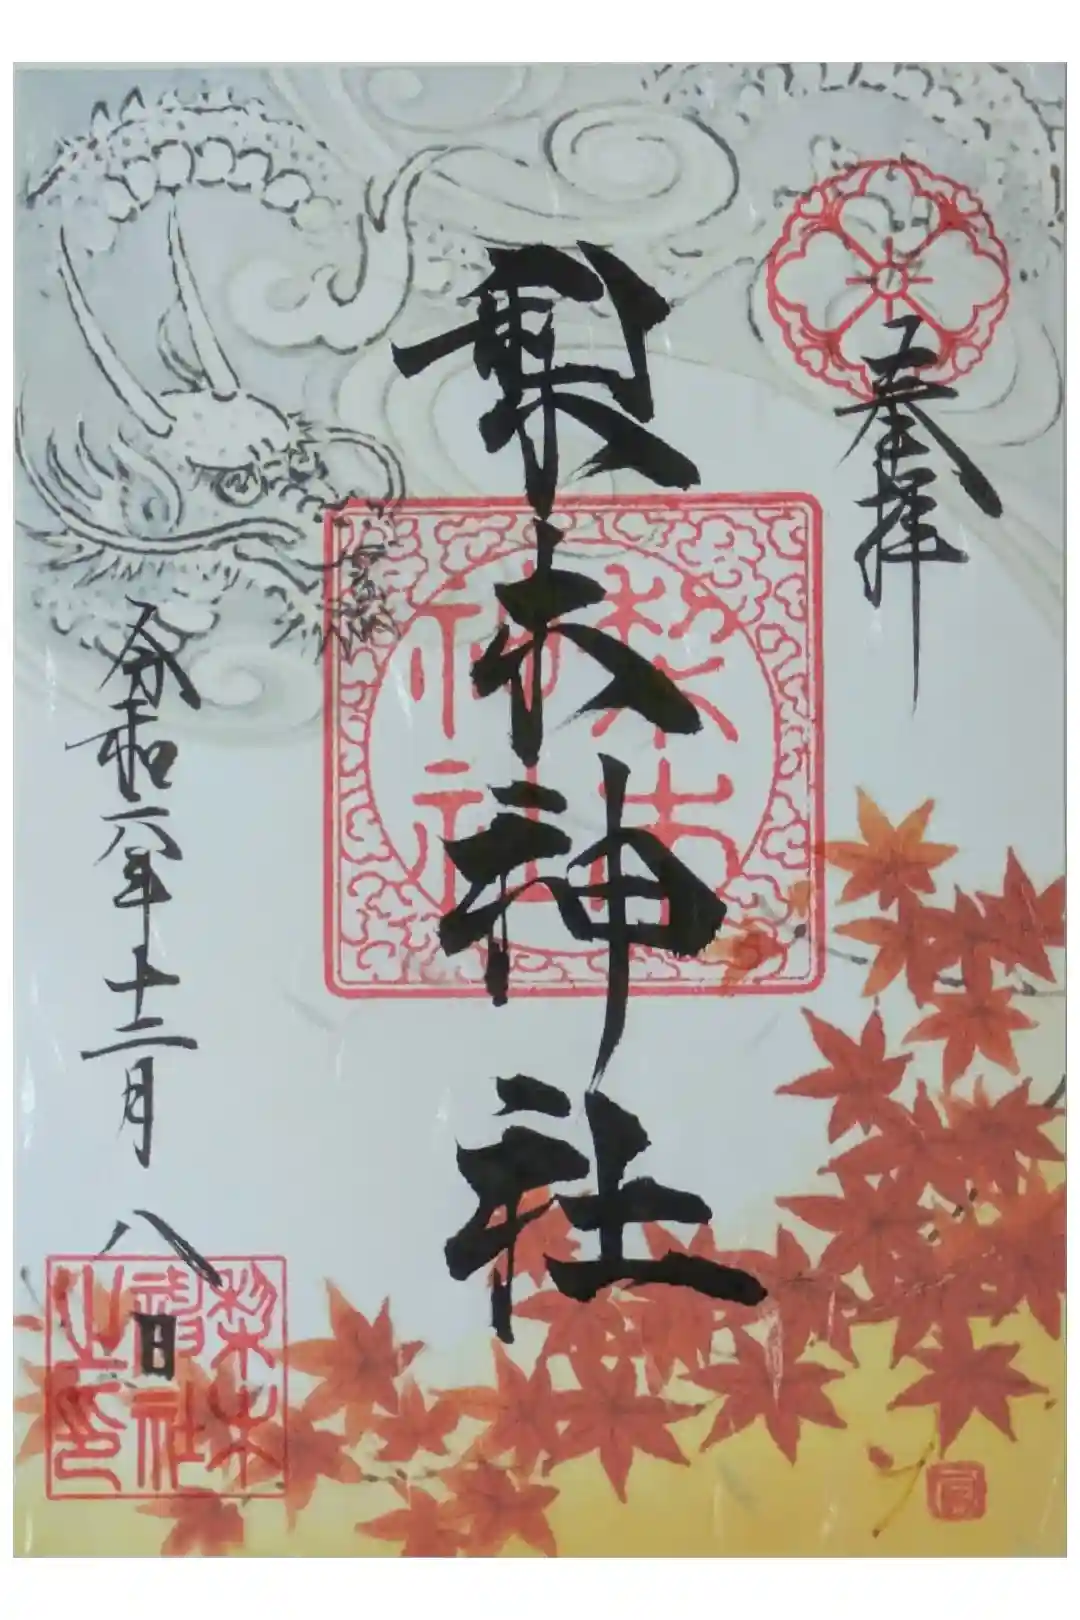 奉拝
梨木神社
梨木神社
令和六年十二月八日
梨木神社之印